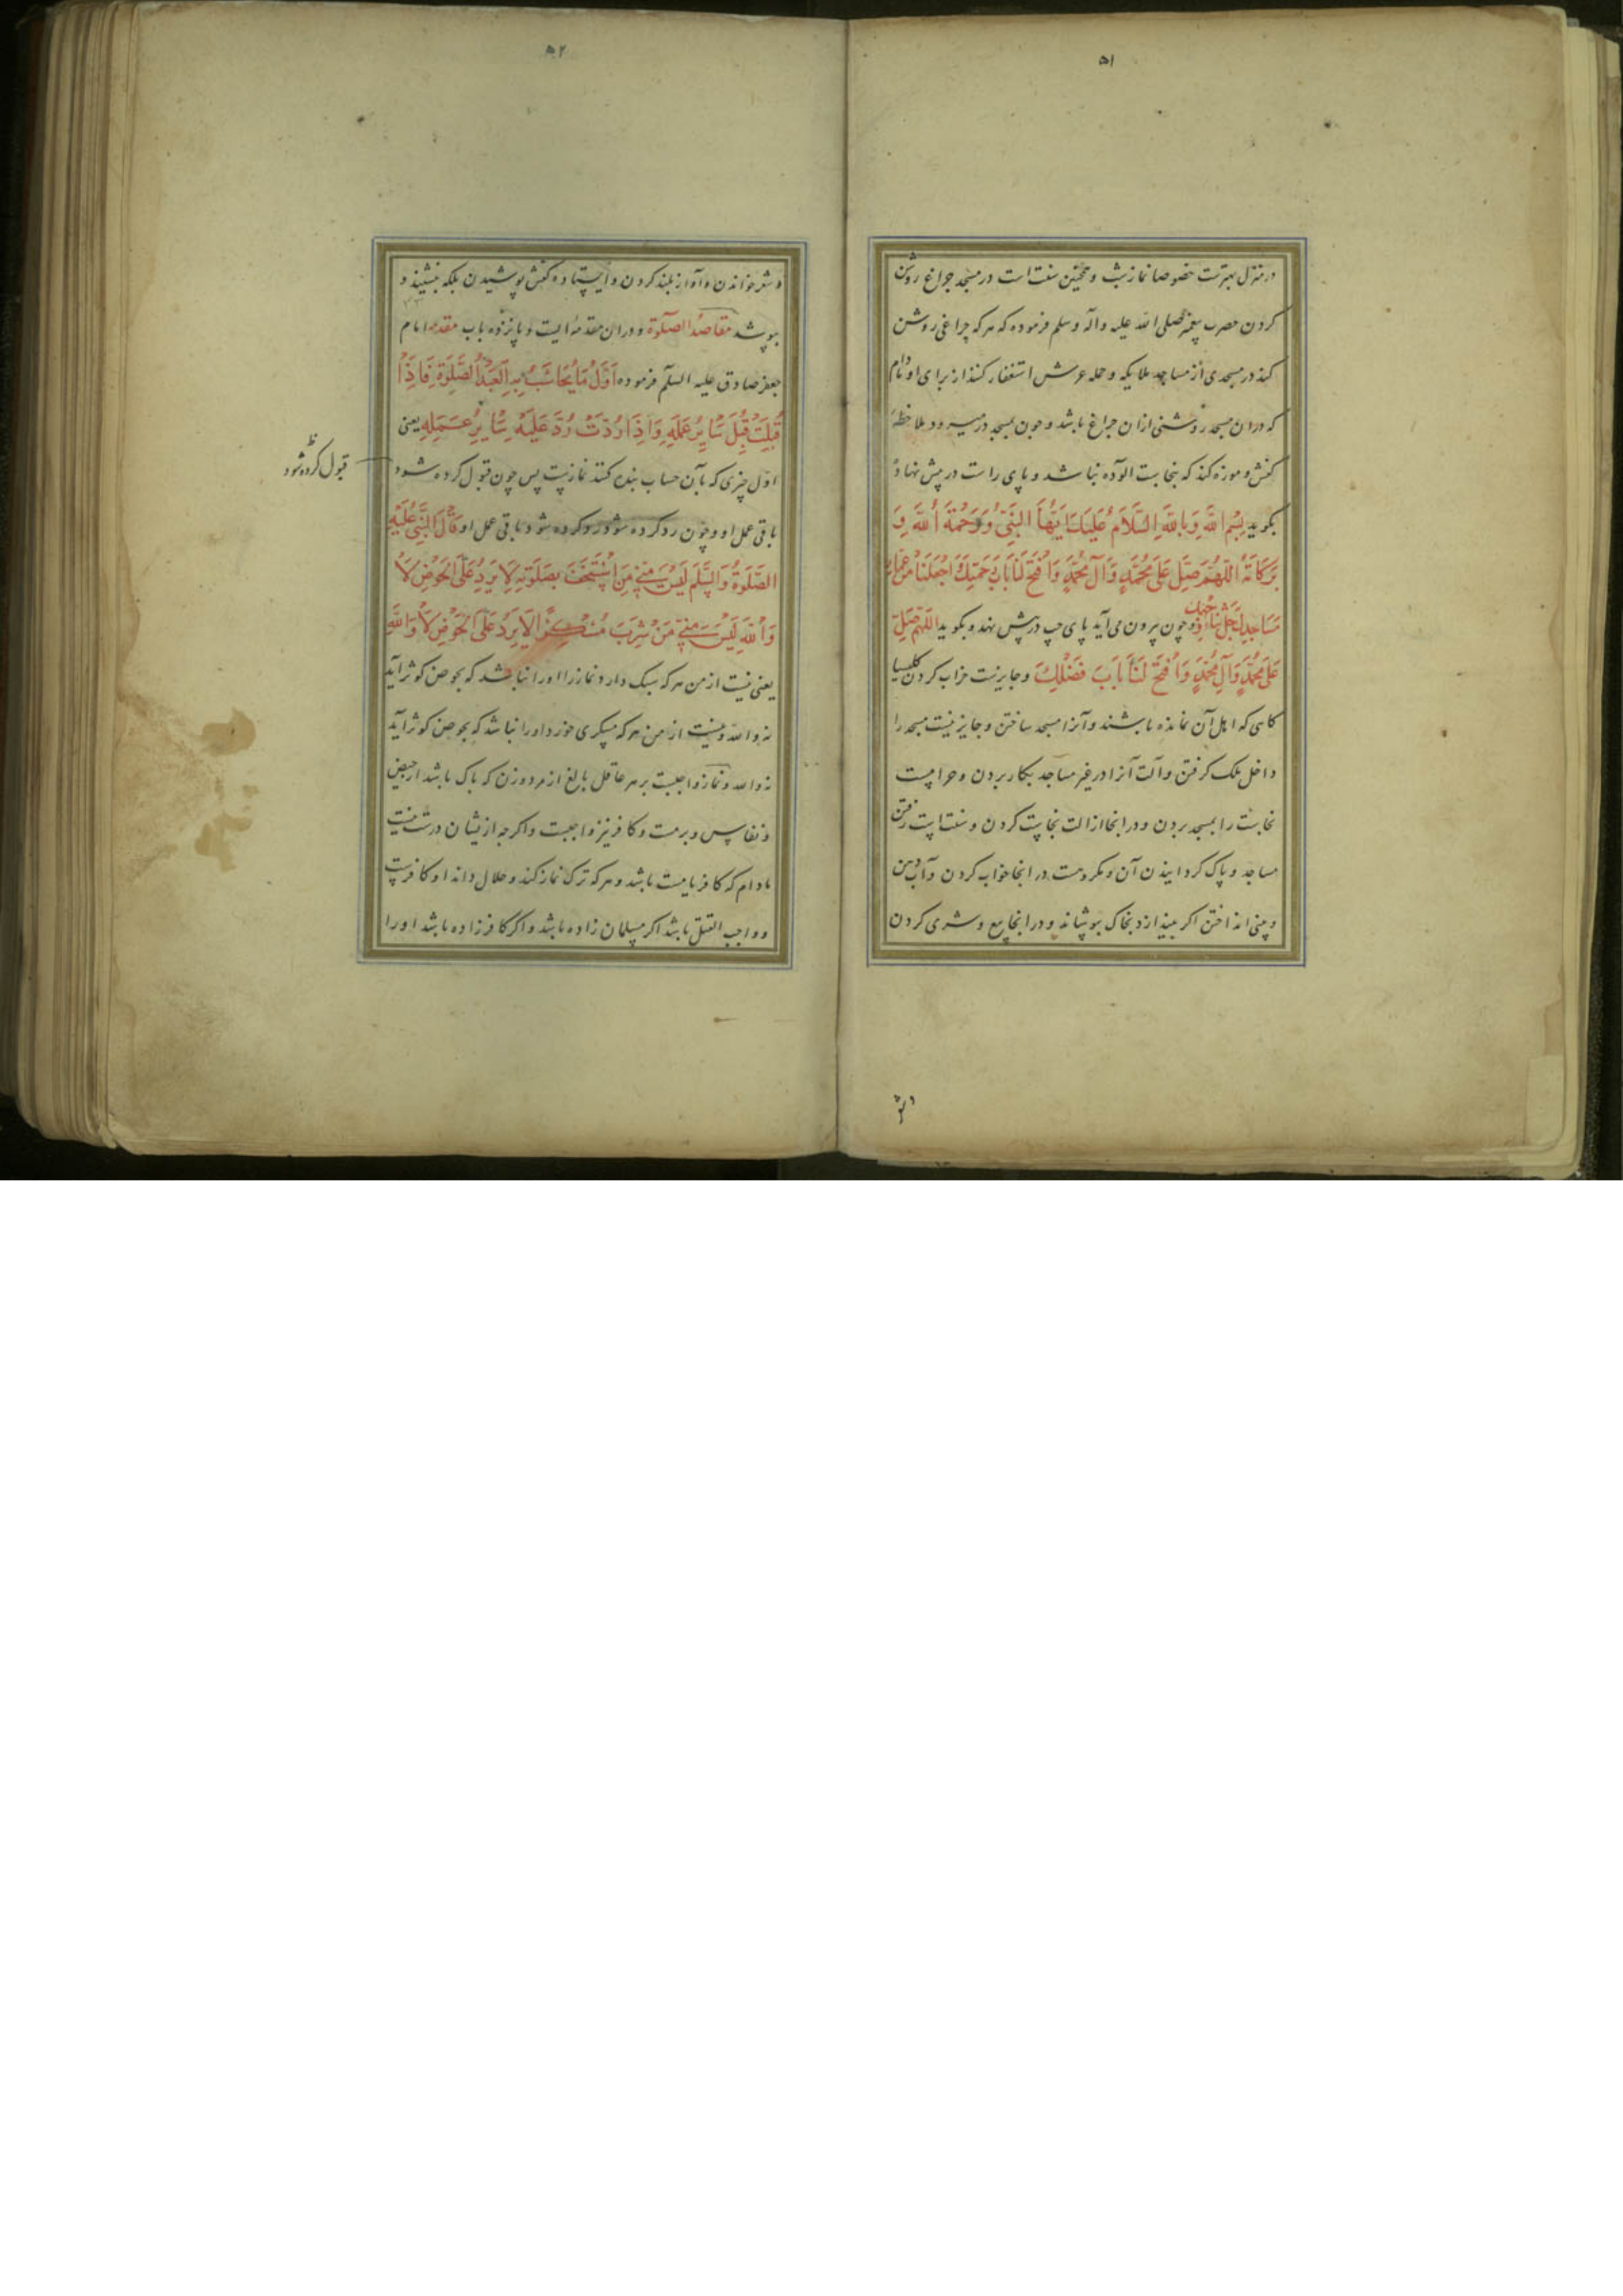 ۵۱
در منزل بهترست خصوصا نماز شب و همچنین سنت است در مسجد چراغ روشن
کردن حضرت پیغمبر صلی الله علیه وآله وسلم فرموده که هر که چراغی روشن
کند در مسجدی از مساجد ملایکه و حمله عرش استغفار کنند از برای او مادام
که در ان مسجد روشنی ازان چراغ باشد و چون بمسجد در میرود ملاحظهٔ
کفش و موزه کند که بنجاست آلوده نباشد و پای راست در پیش نهاد
بگوید بِسْمِ اللهِ وَبِاللهِ السَّلَامُ عَلَيْكَ اَيُّهَا النَّبِيُّ وَرَحْمَةُ اللهِ وَ
بَرَكَاتُهُ اللّهُمَّ صَلِّ عَلَى مُحَمَّدٍ وَآلِ مُحَمَّدٍ وَافْتَحْ لَنَا بَابَ رَحْمَتِكَ وَاجْعَلْنَا مِنْ عُمَّارِ
مَسَاجِدِكَ جَلَّ ثَنَاءُ وَجْهِكَ و چون بیرون می آید پای چپ در پیش نهد و بگوید اللّهُمَّ صَلِّ
عَلَى مُحَمَّدٍ وَآلِ مُحَمَّدٍ وَافْتَحْ لَنَا بَابَ فَضْلِكَ و جایزست خراب کردن کلیسیا
کاسی که اهل آن نمانده باشند و آنرا مسجد ساختن و جایز نیست مسجد را
داخل ملک کرفتن و آلت آنرا در غیر مساجد بکار بردن و حرامست
نجاست را بمسجد بردن و در انجا ازالت نجاست کردن و سنت است رفتن
مساجد و پاک کردانیدن آن و مکروهست در انجا خواب کردن و آب دهن
و بینی انداختن اکر بیندازد بخاک بپوشاند و در انجا بیع و شری کردن
و شعر
۵۲
و شعر خواندن و آواز بلند کردن و ایستاده کفش پوشیدن بلکه بنشیند و
بپوشد مقاصد الصلوة و دران مقدمه ایست و پانزده باب مقدمه امام
جعفر صادق علیه السلم فرموده اَوَّلُ مَا يُحَاسَبُ بِهِ الْعَبْدُ الصَّلوةُ فَاِذَا
قُبِلَتْ قُبِلَ سَايِرُ عَمَلِهِ وَاِذَا رُدَّتْ رُدَّ عَلَيْهِ سَايِرُ عَمَلِهِ یعنی
اول چیزی که بآن حساب بنده کنند نمازست پس چون قبول کرده شود
قبول کرده شود
باقی عمل او و چون رد کرده شود رد کرده شود باقی عمل او وَقَالَ النَّبِيُّ عَلَيْهِ
الصَّلوةُ وَالسَّلَمُ لَيْسَ مِنّي مَنِ اسْتَخَفَّ بِصَلوتِهِ لَا يَرِدُ عَلَى الْحَوْضِ لَا
وَاللهِ لَيْسَ مِنّي مَنْ شَرِبَ مُسْكِرًا لَا يَرِدُ عَلَى الْحَوْضِ لَا وَاللهِ
یعنی نیست از من هر که سبک دارد نماز را او را نباشد که بحوض کوثر آید
نه والله و نیست از من هر که مسکری خورد او را نباشد که بحوض کوثر آید
نه والله و نماز واجبست بر هر عاقل بالغ از مرد و زن که پاک باشد از حیض
و نفاس و بر مست و کافر نیز واجبست و اکرچه از ایشان درست نیست
مادام که کافر یا مست باشد و هر که ترک نماز کند و حلال داند او کافرست
و واجب القتل باشد اکر مسلمان زاده باشد و اکر کافر زاده باشد او را